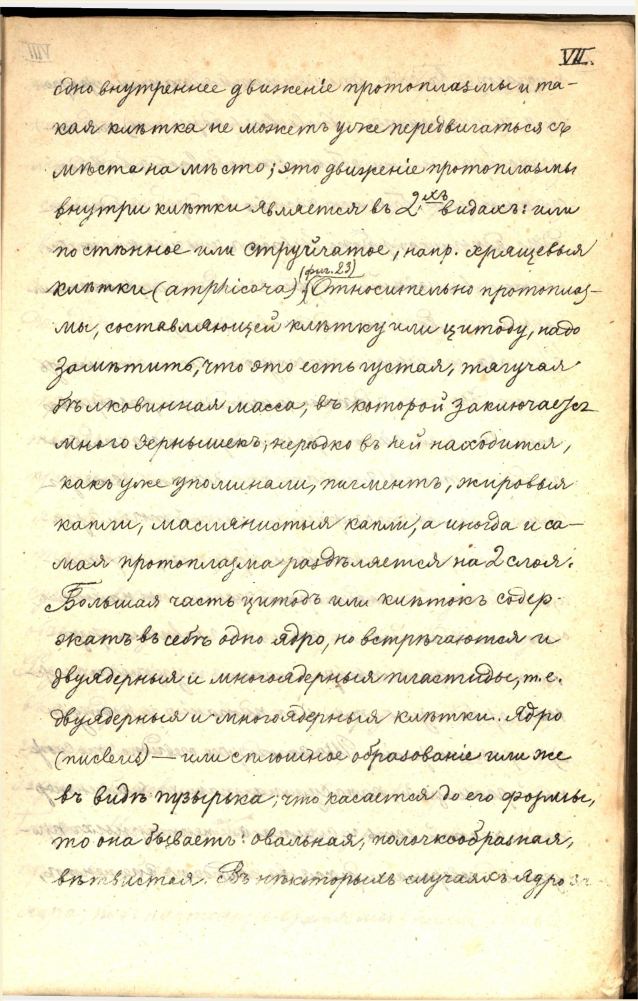 VII.
одно внутреннее движеніе протоплазмы и та-
кая клѣтка не можетъ уже передвигаться съ
мѣста на мѣсто; это движеніе протоплазмы
внутри клѣтки является въ 2хъ видахъ: или
постѣнное или струйчатое, напр. хрящевыя
(фиг. 23)
клѣтки (amphicora). Относительно протоплаз-
мы, составляющей клѣтку или цитоду, надо
замѣтить, что это есть густая, тягучая
бѣлковинная масса, въ которой заключается
много зернышекъ; нерѣдко въ ней находится,
какъ уже упоминали, пигментъ, жировыя
капли, маслянистыя капли, а иногда и са-
мая протоплазма раздѣляется на 2 слоя.
Большая часть цитодъ или клѣтокъ содер-
жатъ въ себѣ одно ядро, но встрѣчаются и
двуядерныя и многоядерныя пластиды, т.е.
двуядерныя и многоядерныя клѣтки. Ядро
(nucleus) — или сплошное образованіе или же
въ видѣ пузырька; что касается до его формы,
то она бываетъ: овальная, палочкообразная,
вѣтвистая. Въ нѣкоторыхъ случаяхъ ядро